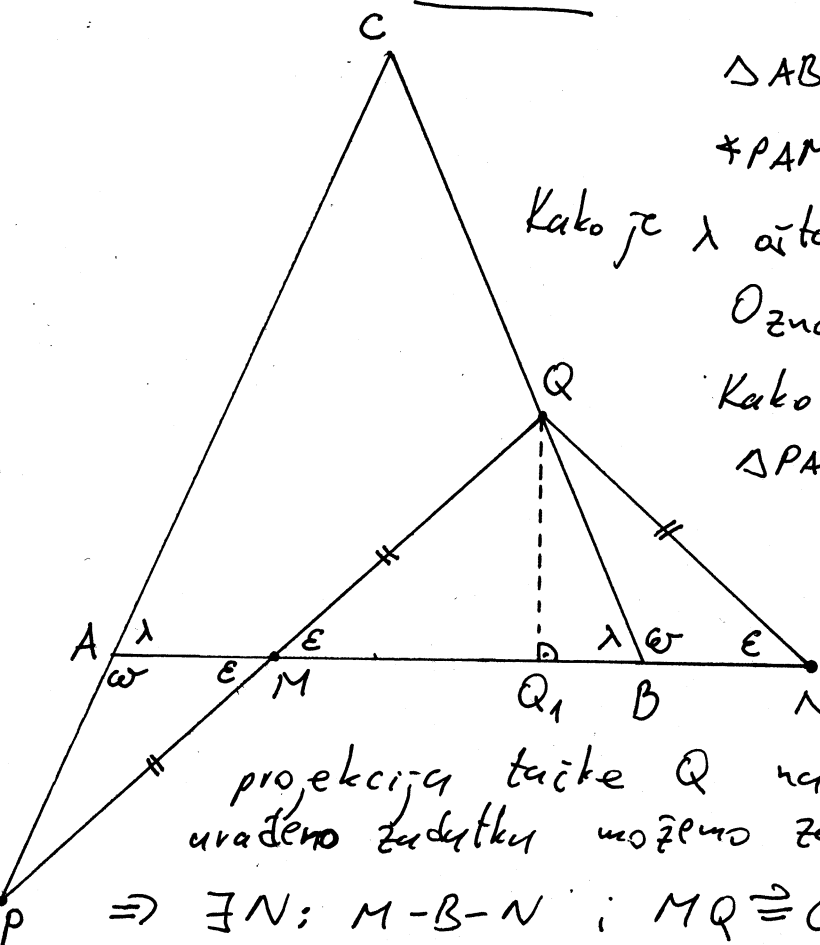 C
Δ AB
∢PAM
Kako je λ ošt
Ozna
Q
Kako
Δ PA
A λ ε λ ω ε
ω ε M Q₁ B N
projekcija tačke Q na
urađeno zadatku možemo za
P ⇒ ∃N: M-B-N i MQ ≅